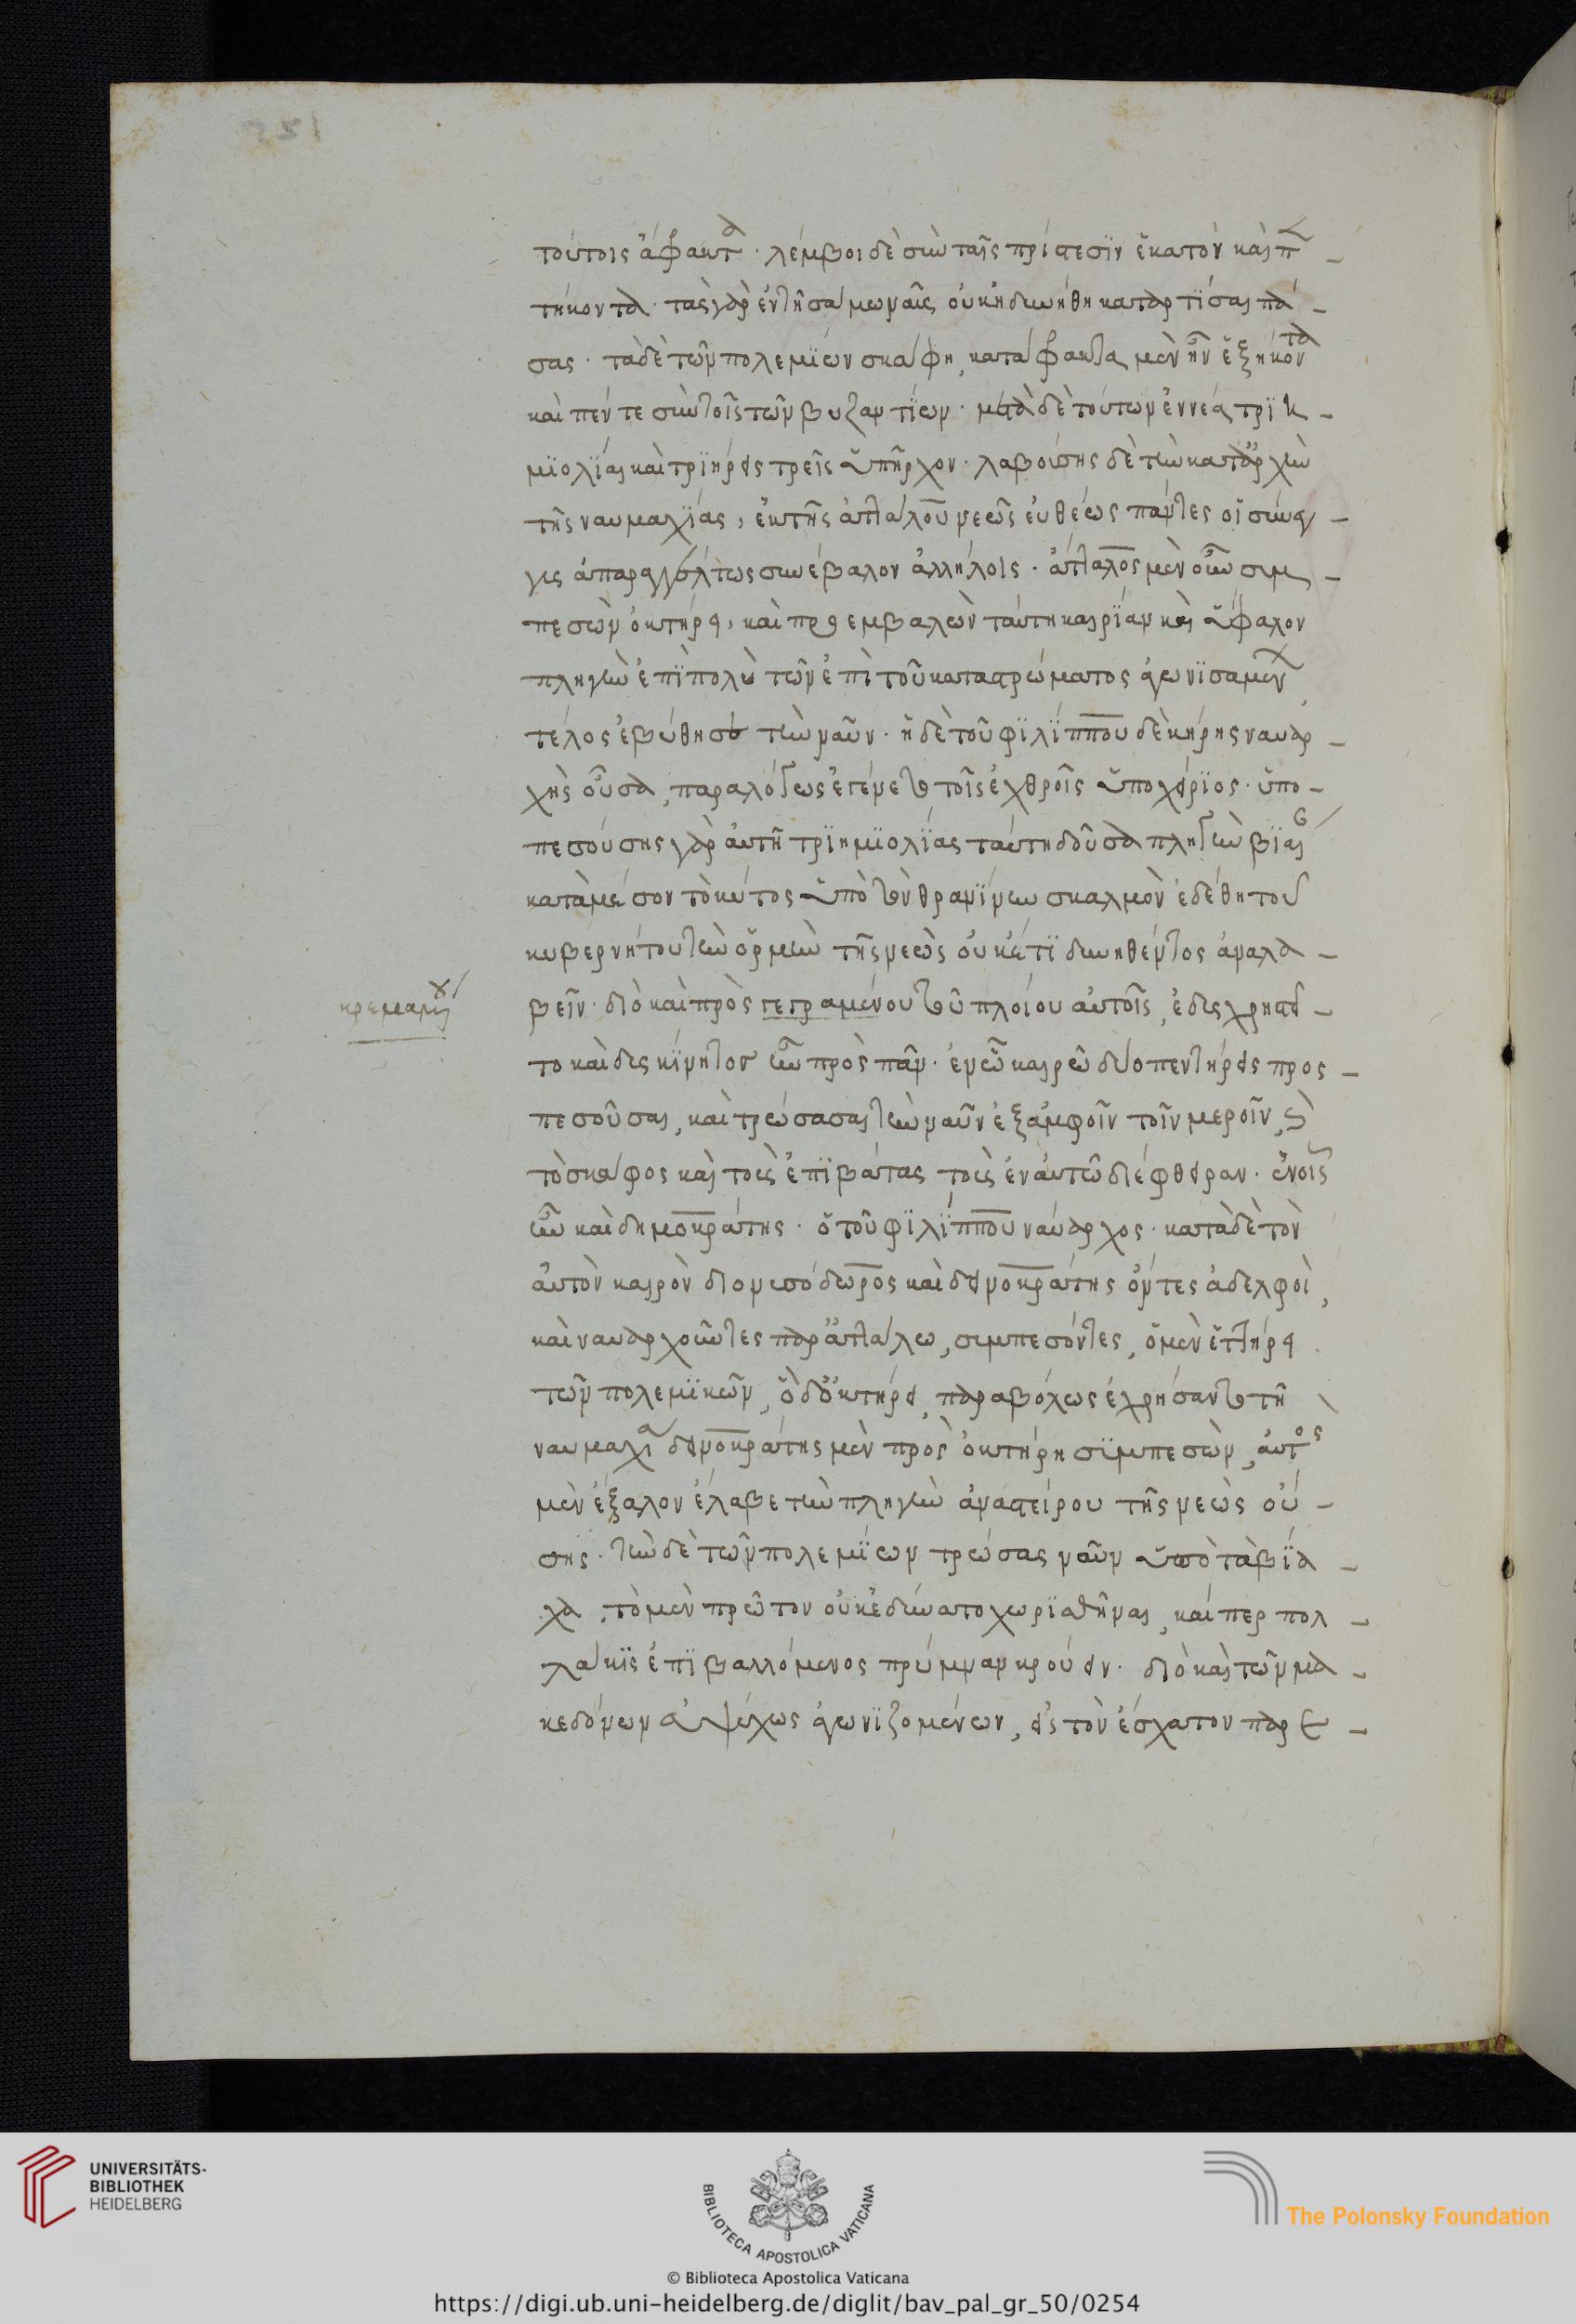 251
τούτοις ἄφρακτα · λέμβοι δὲ σὺν ταῖς πρίστεσϊν ἑκατὸν καὶ πεν-
τήκοντα · τὰς γὰρ ἐν τῆ σάμω ναῦς οὐκ ἠδυνήθη καταρτίσαι πά-
σας · τὰ δὲ τῶν πολεμΐων σκάφη, κατάφρακτα μὲν ἦν ἑξήκοντα
καὶ πέντε σὺν τοῖς τῶν βυζαντΐων · μετὰ δὲ τούτων ἐννέα τριη-
μϊολίαι καὶ τριήρεις τρεῖς ὑπῆρχον · λαβούσης δὲ τὴν καταρχὴν
τῆς ναυμαχΐας, ἐκ τῆς ἀττάλου νεὼς εὐθέως πάντες οἱ σύνεγ-
γυς ἀπαραγγέλτως συνέβαλον ἀλλήλοις · ἄτταλος μὲν οὖν συμ-
πεσὼν ὀκτήρει, καὶ προεμβαλὼν ταύτη καιρΐαν καὶ ὕφαλον
πληγὴν ἐπὶ πολὺ τῶν ἐπὶ τοῦ καταστρώματος ἀγωνϊσαμένων,
τέλος ἐβύθησε τὴν ναῦν · ἡ δὲ τοῦ φϊλΐππου δεκήρης ναυαρ-
χὴς οὖσα, παραλόγως ἐγένετο τοῖς ἐχθροῖς ὑποχείρϊος · ὑπο-
πεσούσης γὰρ αὐτῆ τριημϊολΐας ταύτη δοῦσα πληγὴν βϊαί
κατὰ μέσον τὸ κύτος ὑπὸ τὸν θρανΐνην σκαλμὸν ἐδέθη τοῦ
κυβερνήτου τὴν ὁρμὴν τῆς νεὼς οὐκέτϊ δυνηθέντος ἀναλα-
βεῖν · διὸ καὶ πρὸς γεγραμένου τοῦ πλοίου αὐτοῖς, ἐδυσχρηστεῖ-
το καὶ δυσκΐνητος ὢν πρὸς πᾶν · ἐν ὧ καιρῶ δύο πεντήρεις προσ-
πεσοῦσαι, καὶ τρώσασαι τὴν ναῦν ἐξ ἀμφοῖν τοῖν μεροῖν, καὶ
τὸ σκάφος καὶ τοὺς ἐπϊβάτας τοὺς ἐν αὐτῶ διέφθειραν · ἐν οἷς
ἦν καὶ δημοκράτης · ὁ τοῦ φϊλΐππου ναύαρχος · κατὰ δὲ τὸν
αὐτὸν καιρὸν διονυσόδωρος καὶ δεινοκράτης ὄντες ἀδελφοὶ,
καὶ ναυαρχοῦντες παρ' ἀττάλω, συμπεσόντες, ὁ μὲν ἑπτήρει
τῶν πολεμϊκῶν, ὁ δ' ὀκτήρει, παραβόλως ἐχρήσαντο τῆ
ναυμαχία δεινοκράτης μὲν πρὸς ὀκτήρη σϋμπεσὼν, αὐτὸς
μὲν ἔξαλον ἔλαβε τὴν πληγὴν ἀναστείρου τῆς νεὼς οὔ-
σης · τὴν δὲ τῶν πολεμΐων τρώσας ναῦν ὑπὸ τὰ βΐα-
χα, τὸ μὲν πρῶτον οὐκ ἐδύνατο χωρϊσθῆναι, καίπερ πολ-
λάκϊς ἐπϊβαλλόμενος πρύμναν κρούειν · διὸ καὶ τῶν μα-
κεδόνων εὐψύχως ἀγωνϊζομένων, εἰς τὸν ἔσχατον παρε-
κρεμαμένου
UNIVERSITÄTS-
BIBLIOTHEK
HEIDELBERG
BIBLIOTECA APOSTOLICA VATICANA
The Polonsky Foundation
© Biblioteca Apostolica Vaticana
https://digi.ub.uni-heidelberg.de/diglit/bav_pal_gr_50/0254